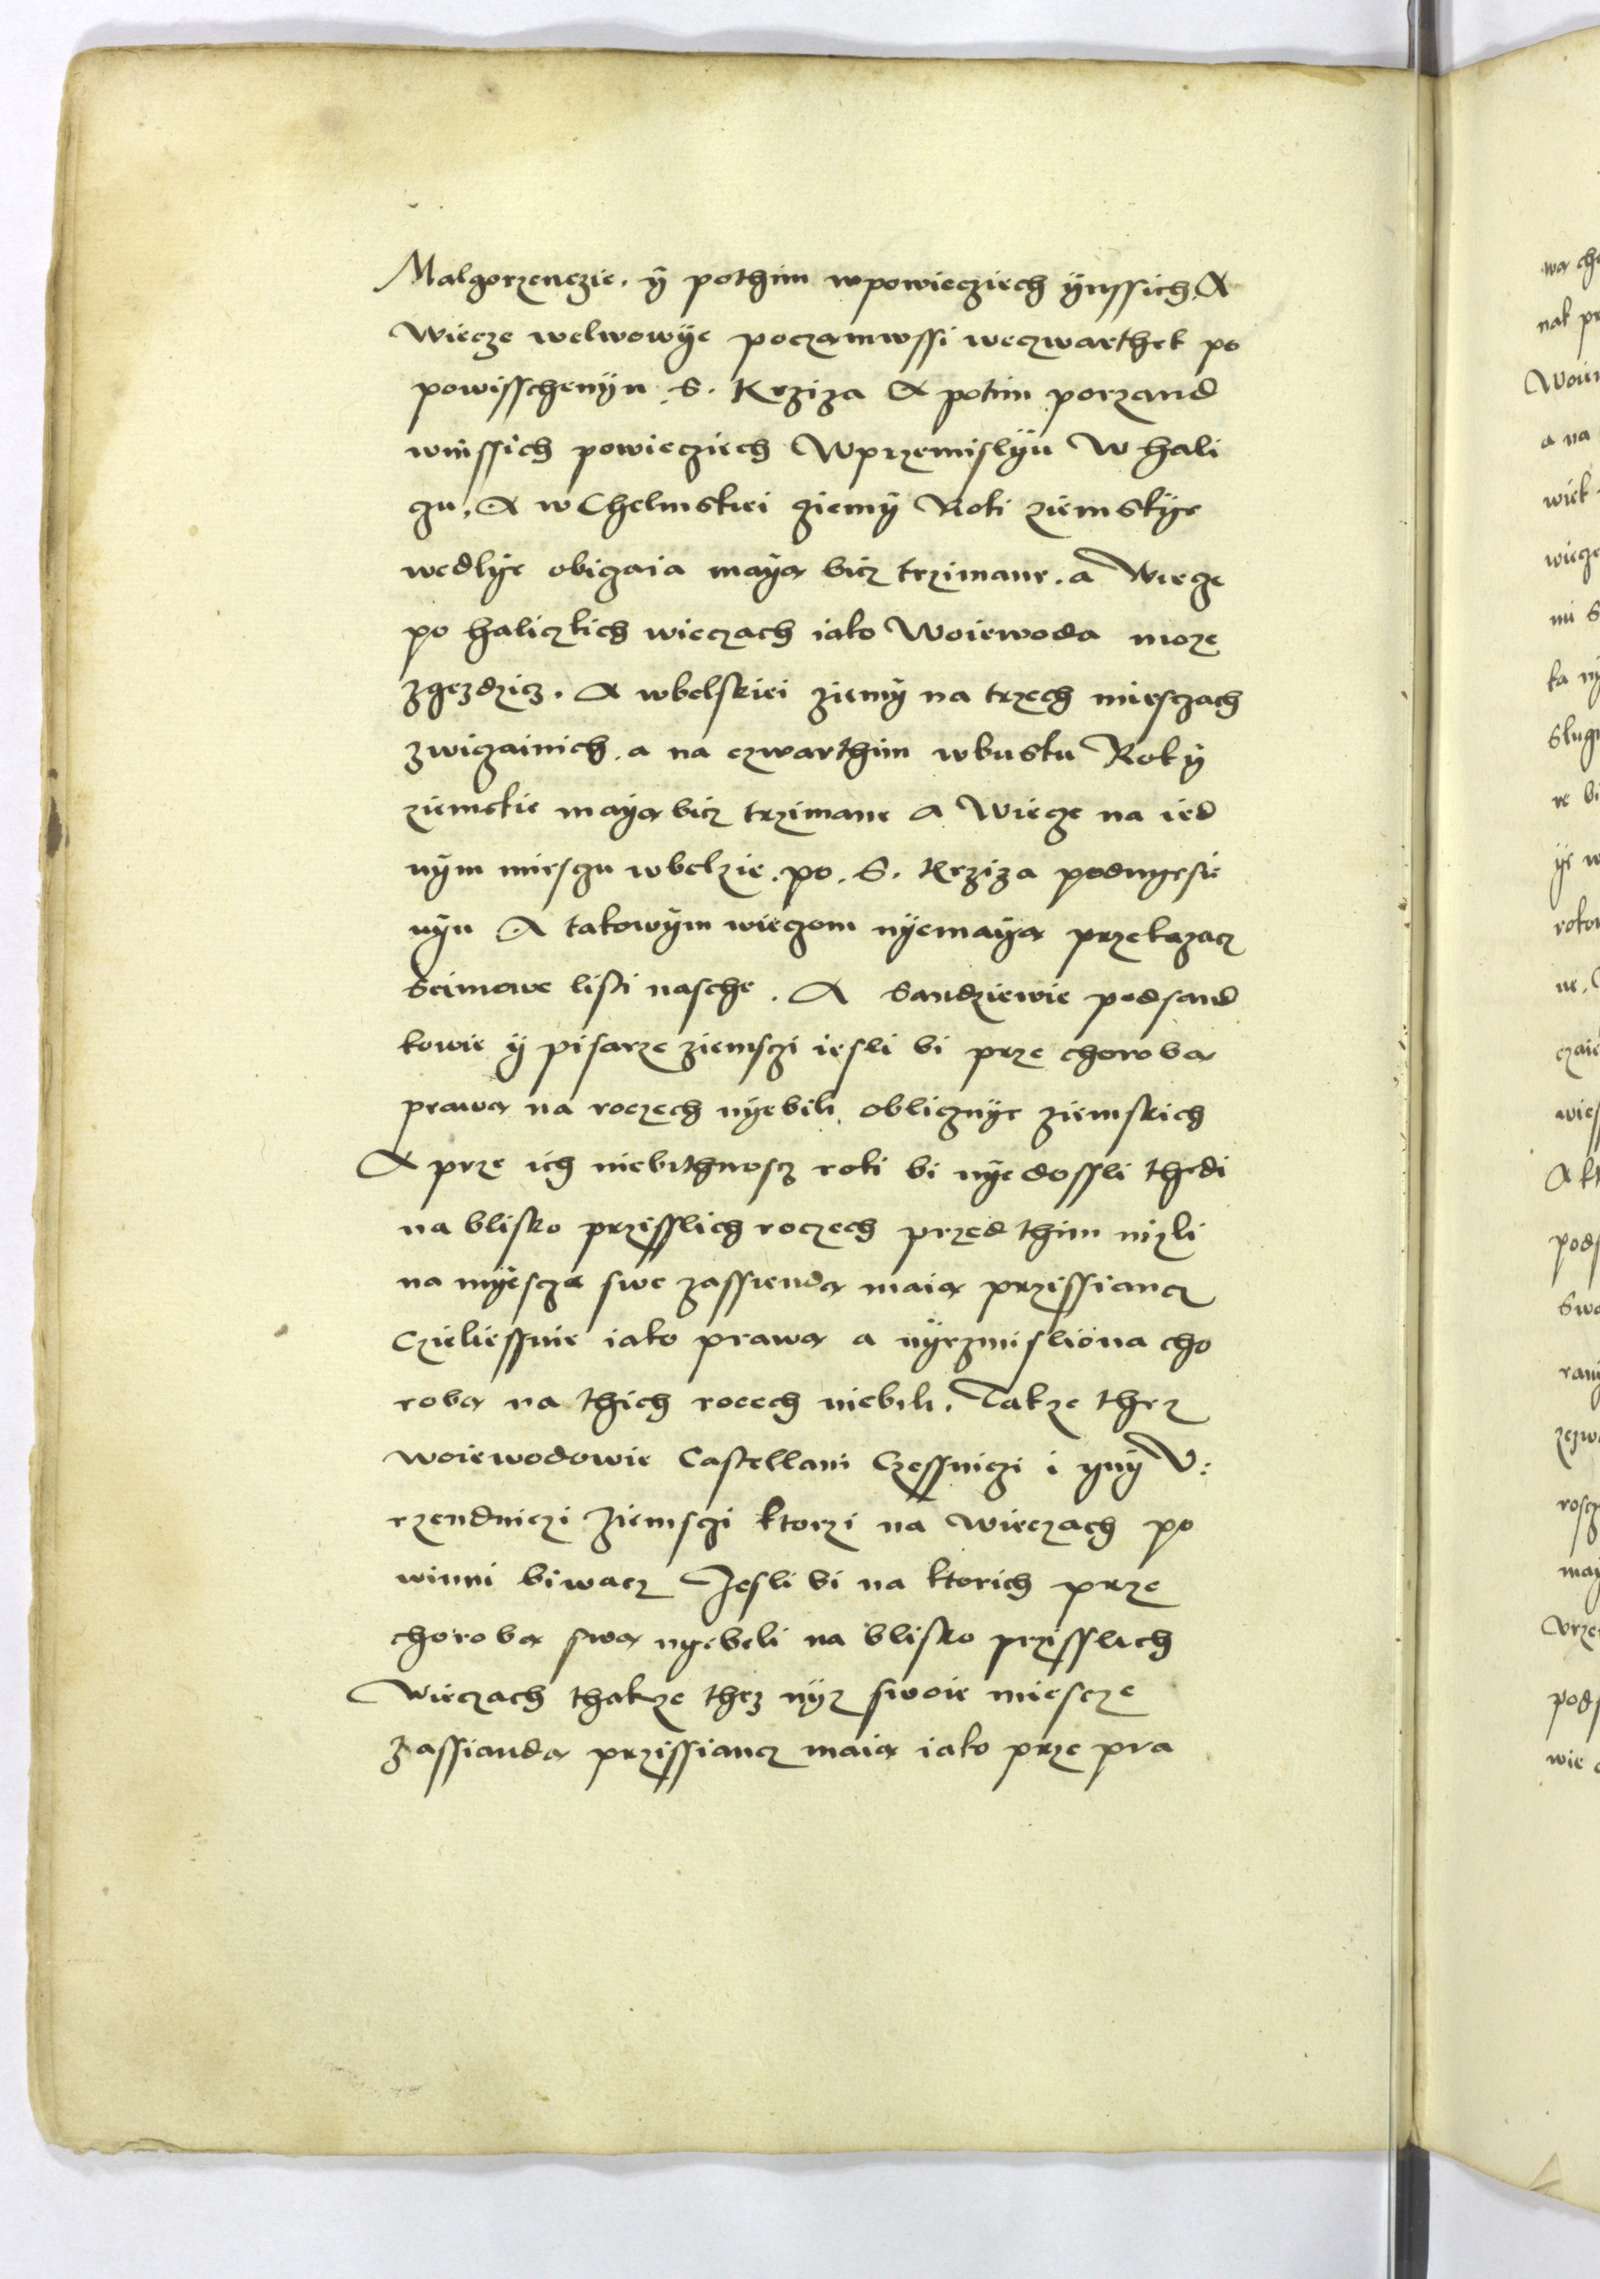 Malgorzenczie. ÿ pothim wpowiecziech ÿnssich. A
Wiecze welwowÿe poczamwssi weczwarthek po
powisschenÿu S. Krziza A potim porzand
winssich powiecziech Wprzemislÿu W hali
czu, A w Chelmskiei ziemÿ Roki ziemskÿe
wedlÿe obiczaia maÿa bicz trzimane. a Wiecze
po haliczkich wieczach iako Woiewoda moze
zgezdzicz. A wbelskiei ziemÿ na trzech miesczach
zwiczainich. a na czwarthim wbusku Rokÿ
ziemskie maÿa bicz trzimane A Wiecze na ied
nÿm miesczu wbelzie. po. S. Krziza podnyesie
nÿu A takowÿm wieczom nÿemaÿa przekazacz
Seimowe listi nasche. A Sandziewie podsand
kowie ÿ pisarze ziemsczi iesli bi prze choroba
prawa na roczech nÿebili oblicznÿe ziemskich
A prze ich niebithnoscz roki bi nÿe dossli thedi
na blisko przisslich roczech przed thim nizli
na mÿescza swe zassienda maia przissiancz
Czieliessnie iako prawa a nÿezmisliona cho
roba na thich rocech niebili. Takze thez
woiewodowie Castellani Czessniczi i ÿnÿ V:
rzendniczi ziemsczi ktorzi na Wieczach po
winni biwacz Jesli bi na ktorich prze
choroba swa nyebeli na blisko przisslich
Wieczach thakze thez nÿz swoie miescze
zassianda przissiancz maia iako prze pra
wa cho
nak pr
a na
wiek
wiecze
mi S
ka nÿ
Slug
re bi
ÿe w
rokow
ne.
czaie
wies
A kt
pods
Swo
zezw
rosc
maÿ
Vrze
pods
wie